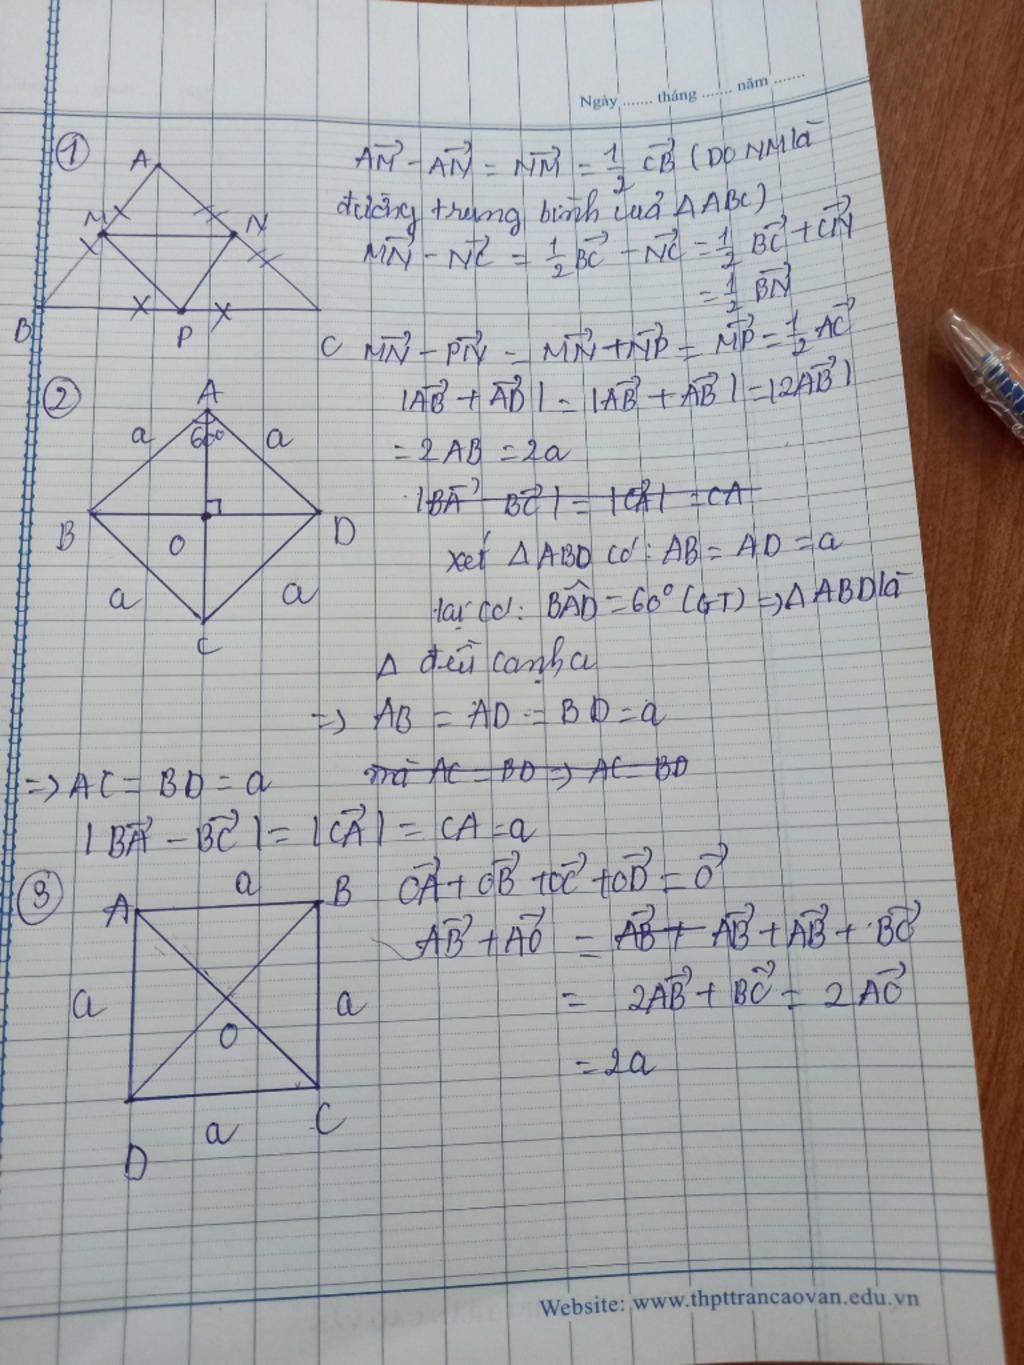 Ngày ....... tháng ....... năm .......
①
A
M
N
B
P
C
AM⃗ - AN⃗ = NM⃗ = 1/2 CB⃗ (Do NM là
đường trung bình của ΔABC)
MN⃗ - NC⃗ = 1/2 BC⃗ - NC⃗ = 1/2 BC⃗ + CN⃗
= 1/2 BN⃗
MN⃗ - PN⃗ = MN⃗ + NP⃗ = MP⃗ = 1/2 AC⃗
②
A
60°
a
a
B
O
D
a
a
C
|AB⃗ + AD⃗| = |AB⃗ + AB⃗| = |2AB⃗|
= 2AB = 2a
|BA⃗ - BC⃗| = |CA⃗| = CA
xét Δ ABD có: AB = AD = a
lại có: BAD̂ = 60° (GT) => Δ ABD là
Δ đều cạnh a
=> AB = AD = BD = a
mà AC = BD => AC = BD
=> AC = BD = a
|BA⃗ - BC⃗| = |CA⃗| = CA = a
③
A
a
B
a
O
a
D
a
C
OA⃗ + OB⃗ + OC⃗ + OD⃗ = O⃗
AB⃗ + AO⃗ = AB⃗ + AB⃗ + AB⃗ + BO⃗
= 2AB⃗ + BO⃗ = 2AO⃗
= 2a
Website: www.thpttrancaovan.edu.vn